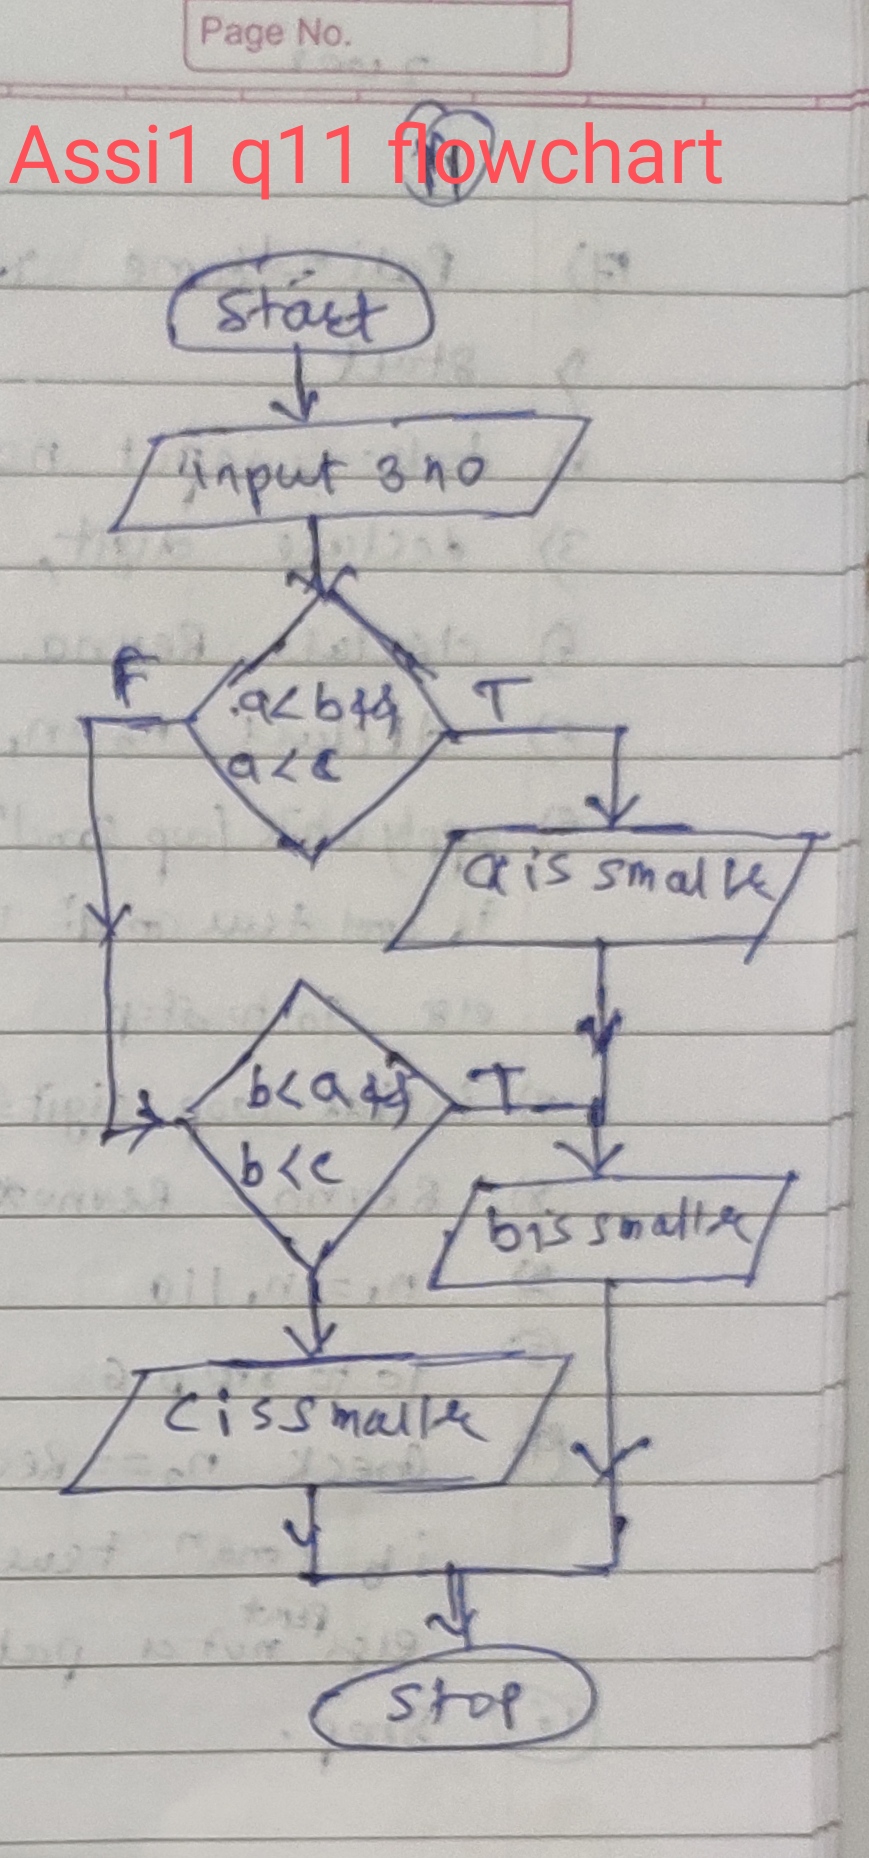 Page No.
Assi1 q11 flowchart
11
Start
input 3 no
a<b&&
a<c
F
T
a is smaller
b<a&&
b<c
T
b is smaller
c is smaller
Stop